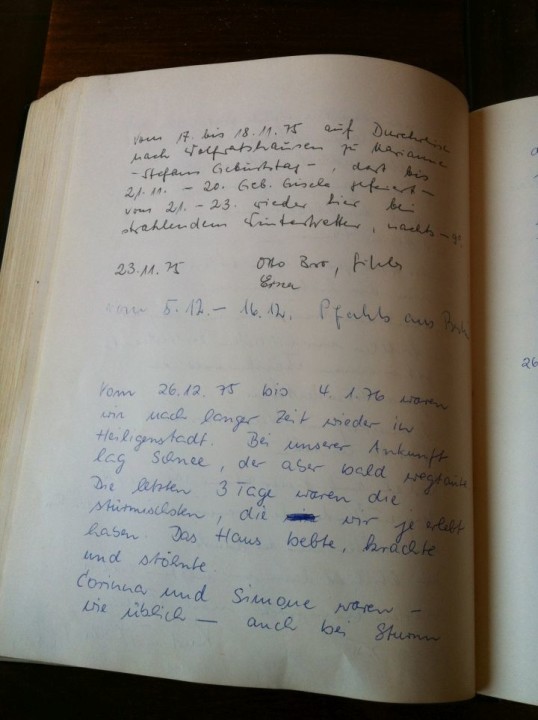 vom 17. bis 18.11.75 auf Durchreise
nach Wolfratshausen zu Marianne
- Stefans Geburtstag -, dort bis
21.11. - 20. Geb. Gisela gefeiert -
vom 21. - 23. wieder hier bei
strahlendem Winterwetter, nachts
23.11.75 Otto
vom 5.12. - 16.12. Pfahls aus
Vom 26.12.75 bis 4.1.76 waren
wir nach langer Zeit wieder in
Heiligenstadt. Bei unserer Ankunft
lag Schnee, der aber bald wegtaute
Die letzten 3 Tage waren die
stürmischsten, die wir je erlebt
haben. Das Haus bebte, krachte
und stöhnte.
Corinna und Simone waren -
wie üblich - auch bei Sturm
26